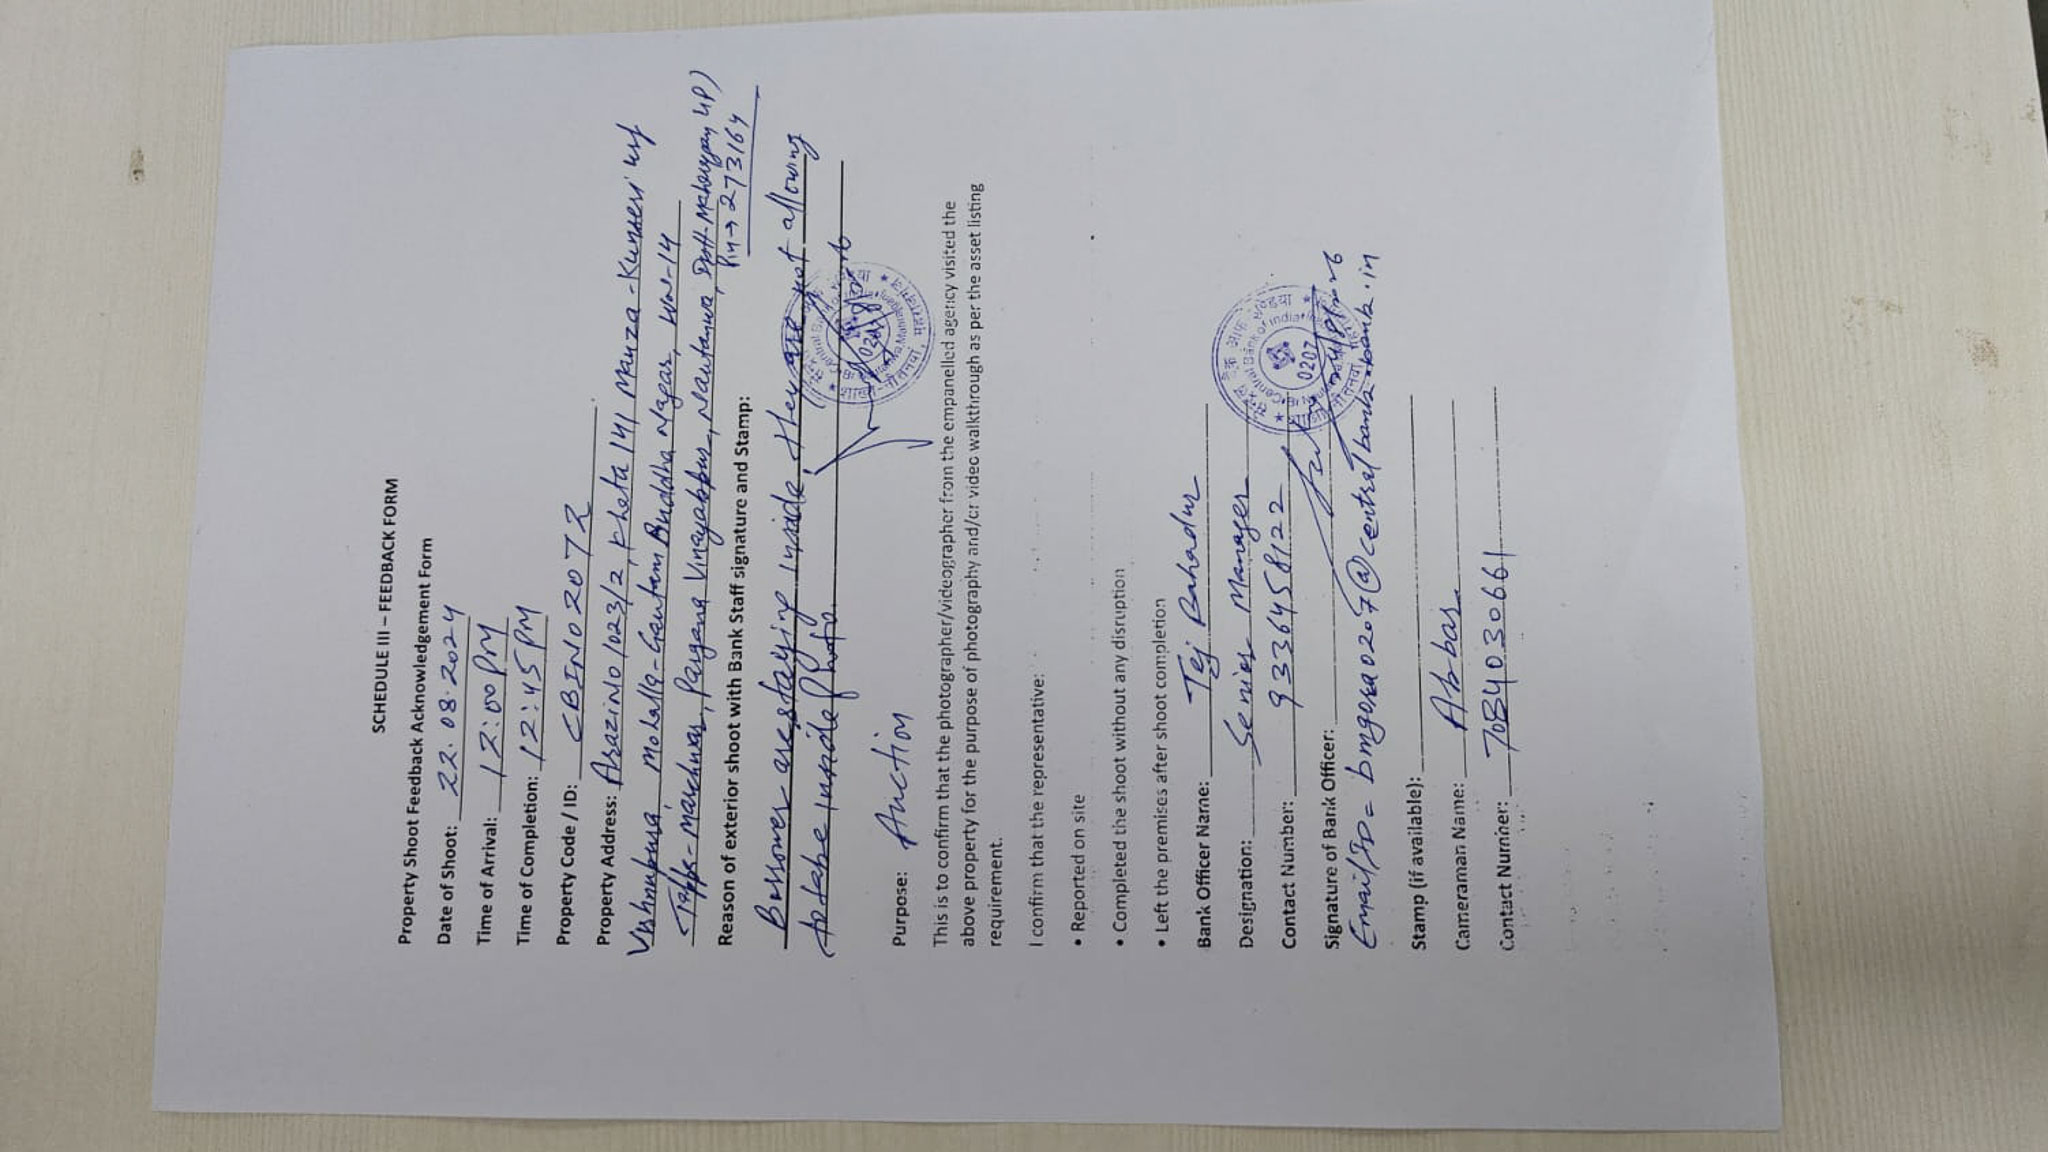 SCHEDULE III – FEEDBACK FORM
Property Shoot Feedback Acknowledgement Form
Date of Shoot: 22.08.2024
Time of Arrival: 12:00 PM
Time of Completion: 12:45 PM
Property Code / ID: CBIN02072
Property Address: Arazi NO 1023/2, Khata 141 Mauza - Kunseri urf
Vishnupura Mohalla - Gautam Buddha Nagar, WN-14
Tappa - Marchwar, Pargana Vinayakpur, Nautanwa, Distt- UP)
Pin → 273164
Reason of exterior shoot with Bank Staff signature and Stamp:
Borrower are staying inside. They are not allowing
to take inside photo.
Purpose: Auction
This is to confirm that the photographer/videographer from the empanelled agency visited the
above property for the purpose of photography and/or video walkthrough as per the asset listing
requirement.
I confirm that the representative:
• Reported on site
• Completed the shoot without any disruption
• Left the premises after shoot completion
Bank Officer Name: Tej Bahadur
Designation: Senior Manager
Contact Number: 9336458122
Signature of Bank Officer:
Email ID = bmgora0207@centralbank.bank.in
Stamp (if available):
Cameraman Name: Abbas
Contact Number: 7084030661
Central Bank of India
0207